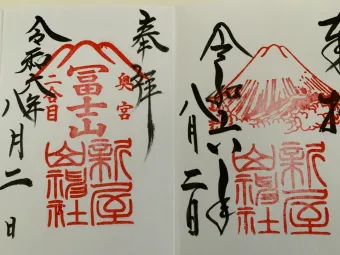 奉拝
奥宮
冨士山
二合目
新屋
山神社
令和六年
八月二日
奉拝
新屋
山神社
令和六年
八月二日